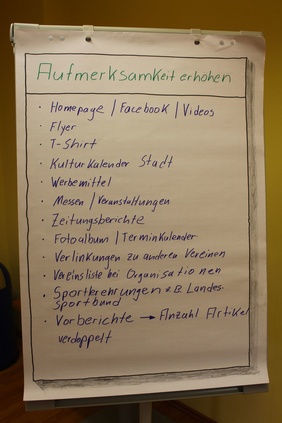 Aufmerksamkeit erhöhen
· Homepage / Facebook / Videos
· Flyer
· T-Shirt
· Kulturkalender Stadt
· Werbemittel
· Messen / Veranstaltungen
· Zeitungsberichte
· Fotoalbum / Terminkalender
· Verlinkungen zu anderen Vereinen
· Vereinsliste bei Organisationen
· Sportkehrungen z.B Landes-
sportbund
· Vorberichte → Anzahl Artikel
verdoppelt